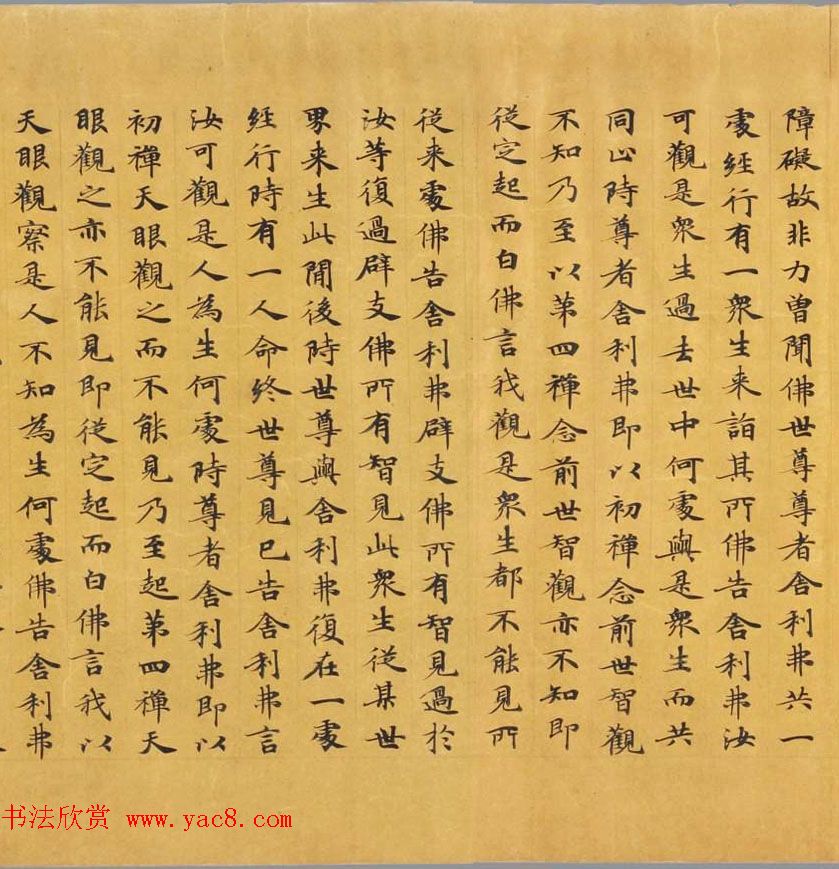 障礙故非力曾聞佛世尊尊者舍利弗共一
處經行有一衆生来詣其所佛告舍利弗汝
可觀是衆生過去世中何處與是衆生而共
同止時尊者舍利弗即以初禪念前世智觀
不知乃至以第四禪念前世智觀亦不知即
從定起而白佛言我觀是衆生都不能見所
從来處佛告舍利弗辟支佛所有智見過於
汝等復過辟支佛所有智見此衆生從某世
界来生此間後時世尊與舍利弗復在一處
經行時有一人命終世尊見已告舍利弗言
汝可觀是人為生何處時尊者舍利弗即以
初禪天眼觀之而不能見乃至起第四禪天
眼觀之亦不能見即從定起而白佛言我以
天眼觀察是人不知為生何處佛告舍利弗
书法欣赏 www.yac8.com